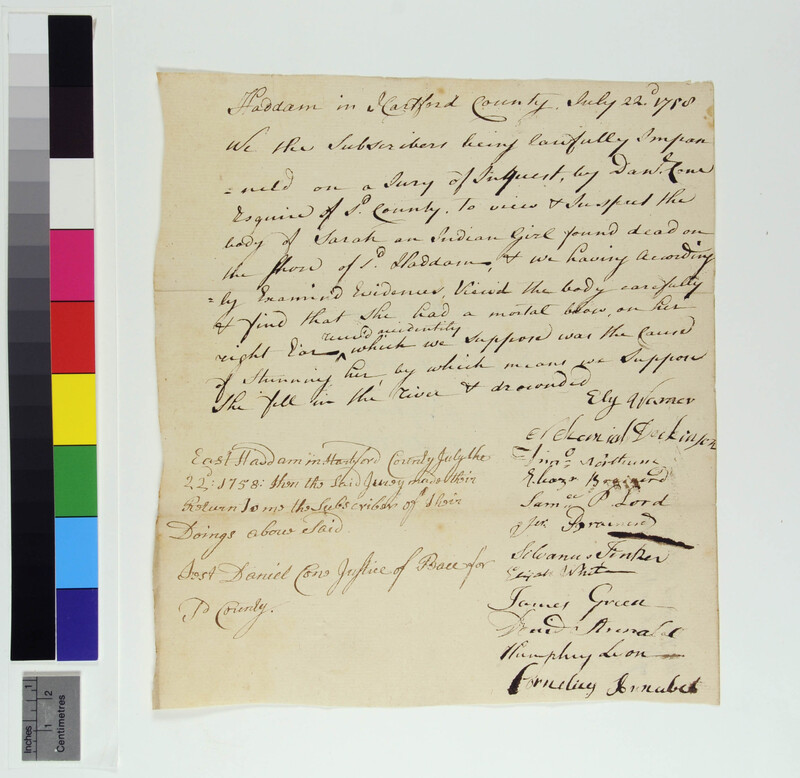 Haddam in Hartford County July 22d 1758
We the Subscribers being lawfully Impan
=neld on a Jury of Inquest, by Danl. Cone
Esquire of sd. County, to view & Inspect the
body of Sarah an Indian Girl found dead on
the shore of sd. Haddam, & we having According
=ly Examind Evidences, View'd the body carefully
& find that she had a mortal blow, on her
recev'd accidentily
right Ear ^ which we suppose was the cause
of stunning her, by which means we suppose
she fell in the river & drownded
Ely Warner
Nehemiah Dickinson
Northum
Eleazr Brainerd
Samll P Lord
Brainerd
Silvanus Tinker
Elijah White
James Green
David Annabel
Humphry Lion
Cornelius Annabel
East Haddam in Hartford County July the
22: 1758: then the Said Jurey made their
Return To me the Subscriber of Their
Doings above Said
Test Daniel Cone Justice of Pace for
Sd County.
Inches
1
1
2
Centimetres